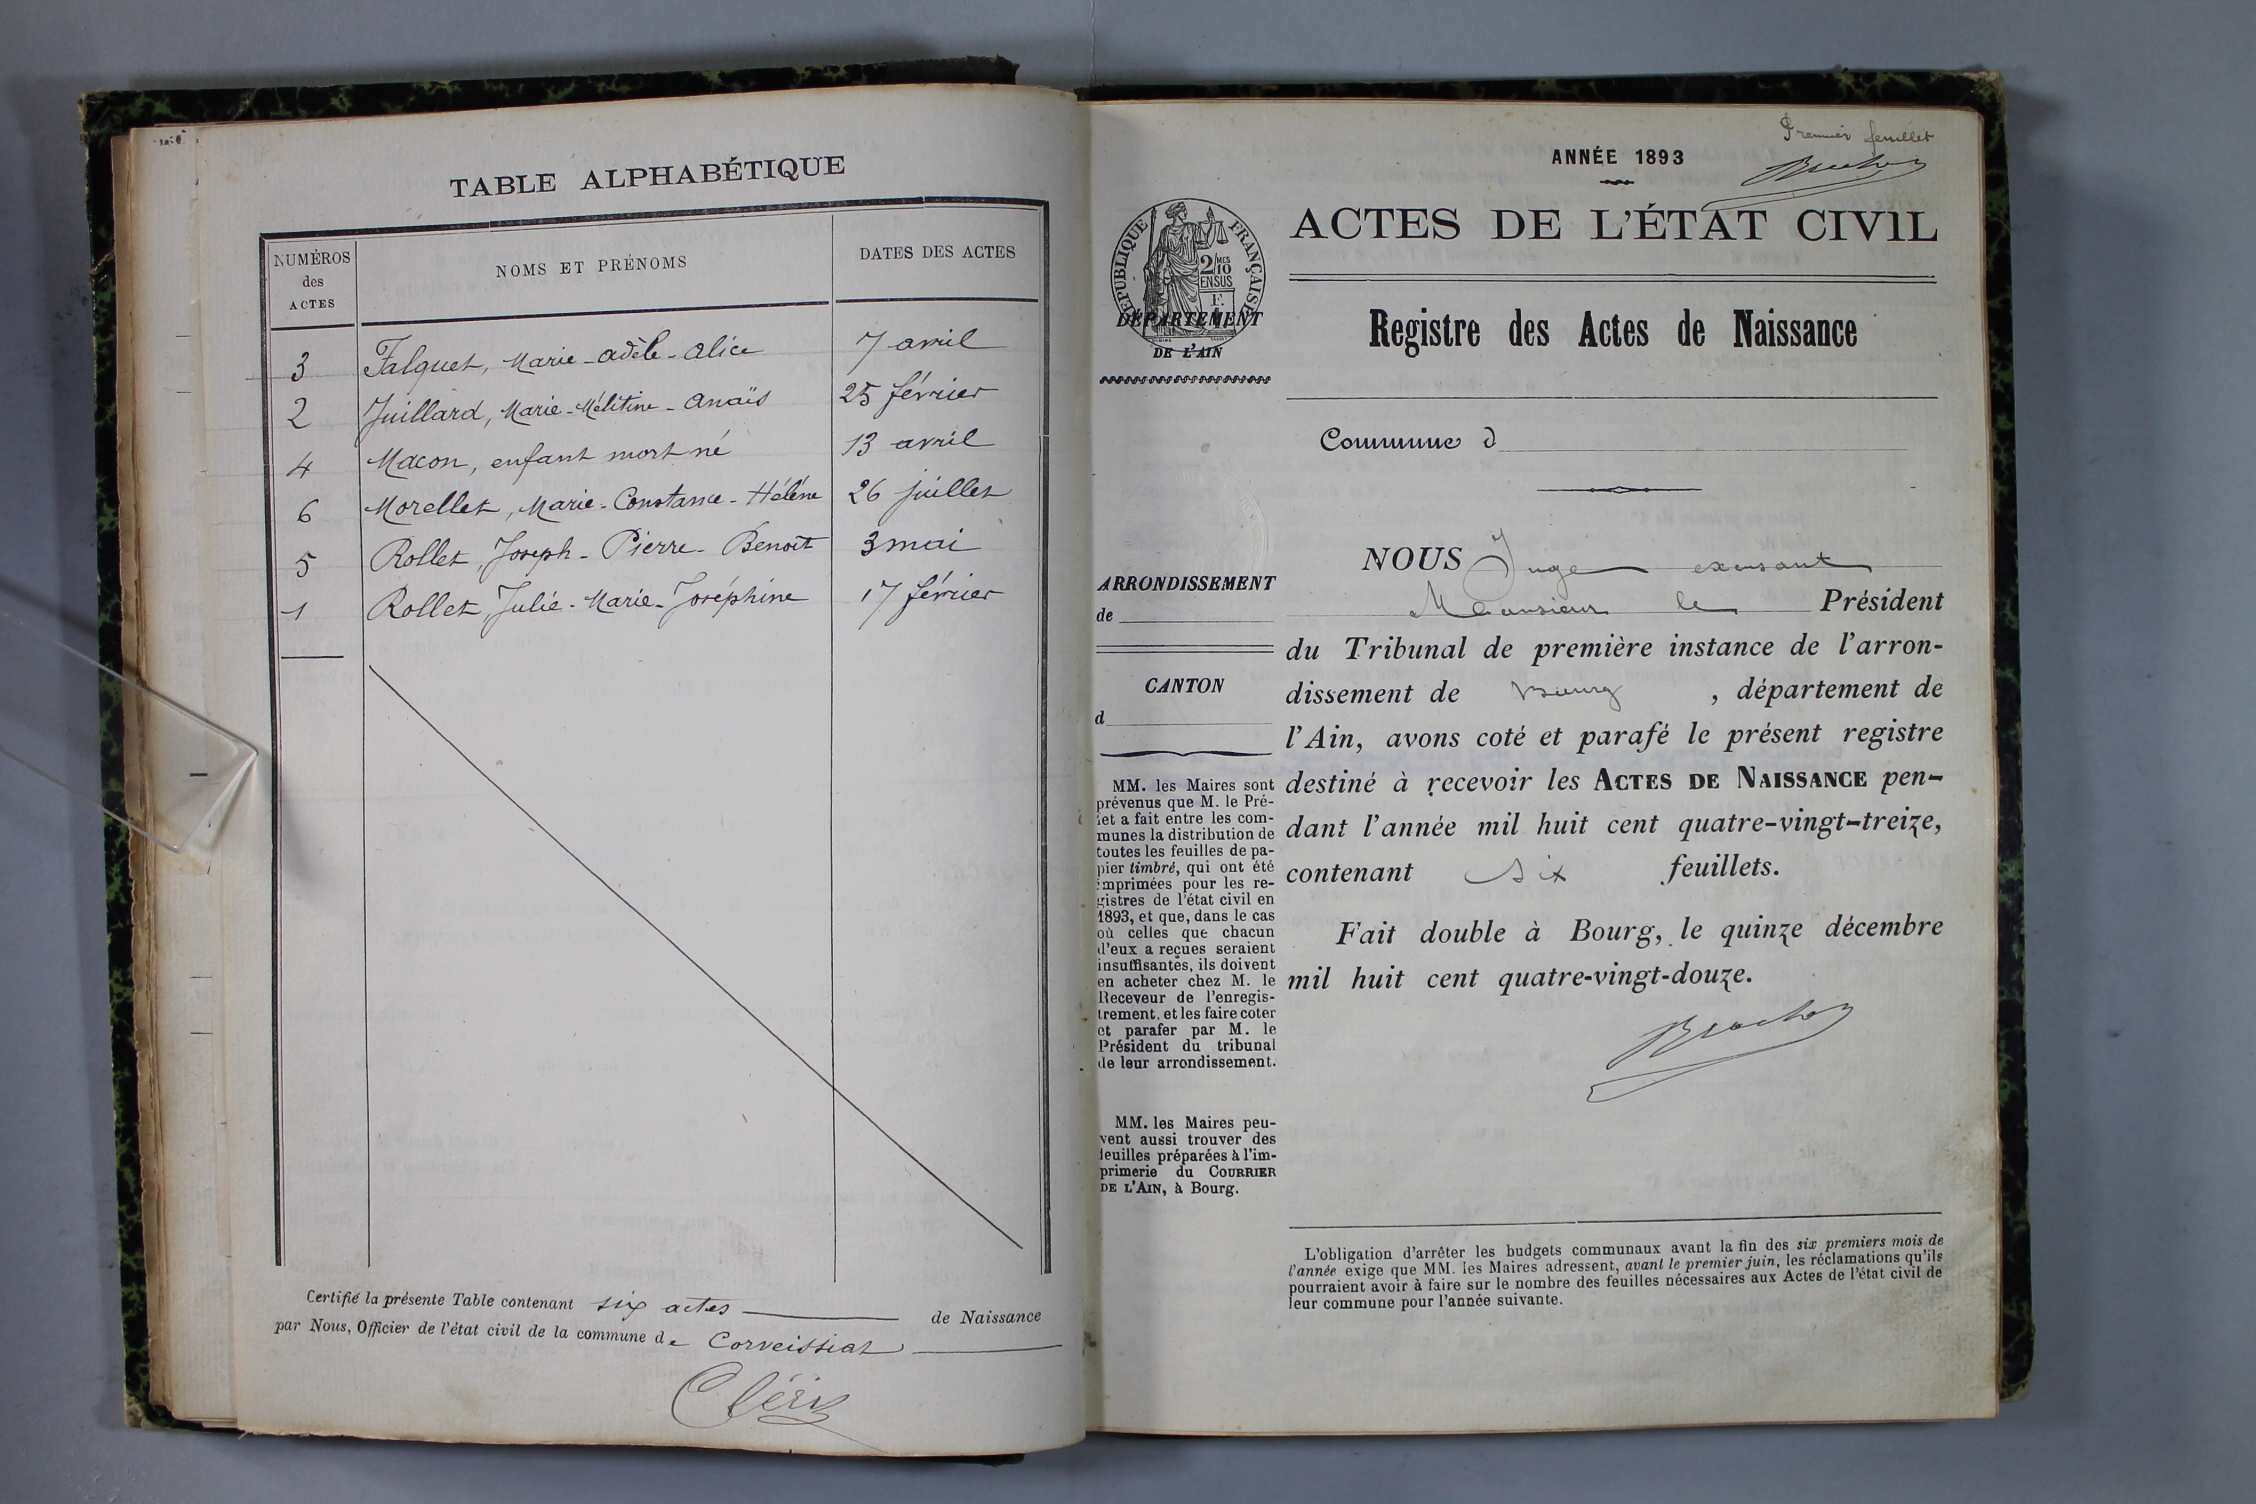 TABLE ALPHABÉTIQUE
NUMÉROS des ACTES
NOMS ET PRÉNOMS
DATES DES ACTES
3 Falquet, Marie-Adèle-Alice 7 avril
2 Juillard, Marie-Mélitine-Anaïs 25 février
4 Macon, enfant mort né 13 avril
6 Morellet, Marie-Constance-Hélène 26 juillet
5 Rollet, Joseph-Pierre-Benoît 3 mai
1 Rollet, Julie-Marie-Joséphine 17 février
Certifié la présente Table contenant six actes de Naissance
par Nous, Officier de l'état civil de la commune de Corveissiat
Premier feuillet
ANNÉE 1893
ACTES DE L'ÉTAT CIVIL
RÉPUBLIQUE FRANÇAISE
2/10 MES
EN SUS
DÉPARTEMENT
DE L'AIN
Registre des Actes de Naissance
Commune d
ARRONDISSEMENT
de
CANTON
d
MM. les Maires sont
prévenus que M. le Pré-
fet a fait entre les com-
munes la distribution de
toutes les feuilles de pa-
pier timbré, qui ont été
imprimées pour les re-
gistres de l'état civil en
1893, et que, dans le cas
où celles que chacun
d'eux a reçues seraient
insuffisantes, ils doivent
en acheter chez M. le
Receveur de l'enregis-
trement, et les faire coter
et parafer par M. le
Président du tribunal
de leur arrondissement.
MM. les Maires peu-
vent aussi trouver des
feuilles préparées à l'im-
primerie du COURRIER
DE L'AIN, à Bourg.
NOUS Juge excusant
Monsieur le Président
du Tribunal de première instance de l'arron-
dissement de Bourg, département de
l'Ain, avons coté et parafé le présent registre
destiné à recevoir les ACTES DE NAISSANCE pen-
dant l'année mil huit cent quatre-vingt-treize,
contenant six feuillets.
Fait double à Bourg, le quinze décembre
mil huit cent quatre-vingt-douze.
L'obligation d'arrêter les budgets communaux avant la fin des six premiers mois de
l'année exige que MM. les Maires adressent, avant le premier juin, les réclamations qu'ils
pourraient avoir à faire sur le nombre des feuilles nécessaires aux Actes de l'état civil de
leur commune pour l'année suivante.